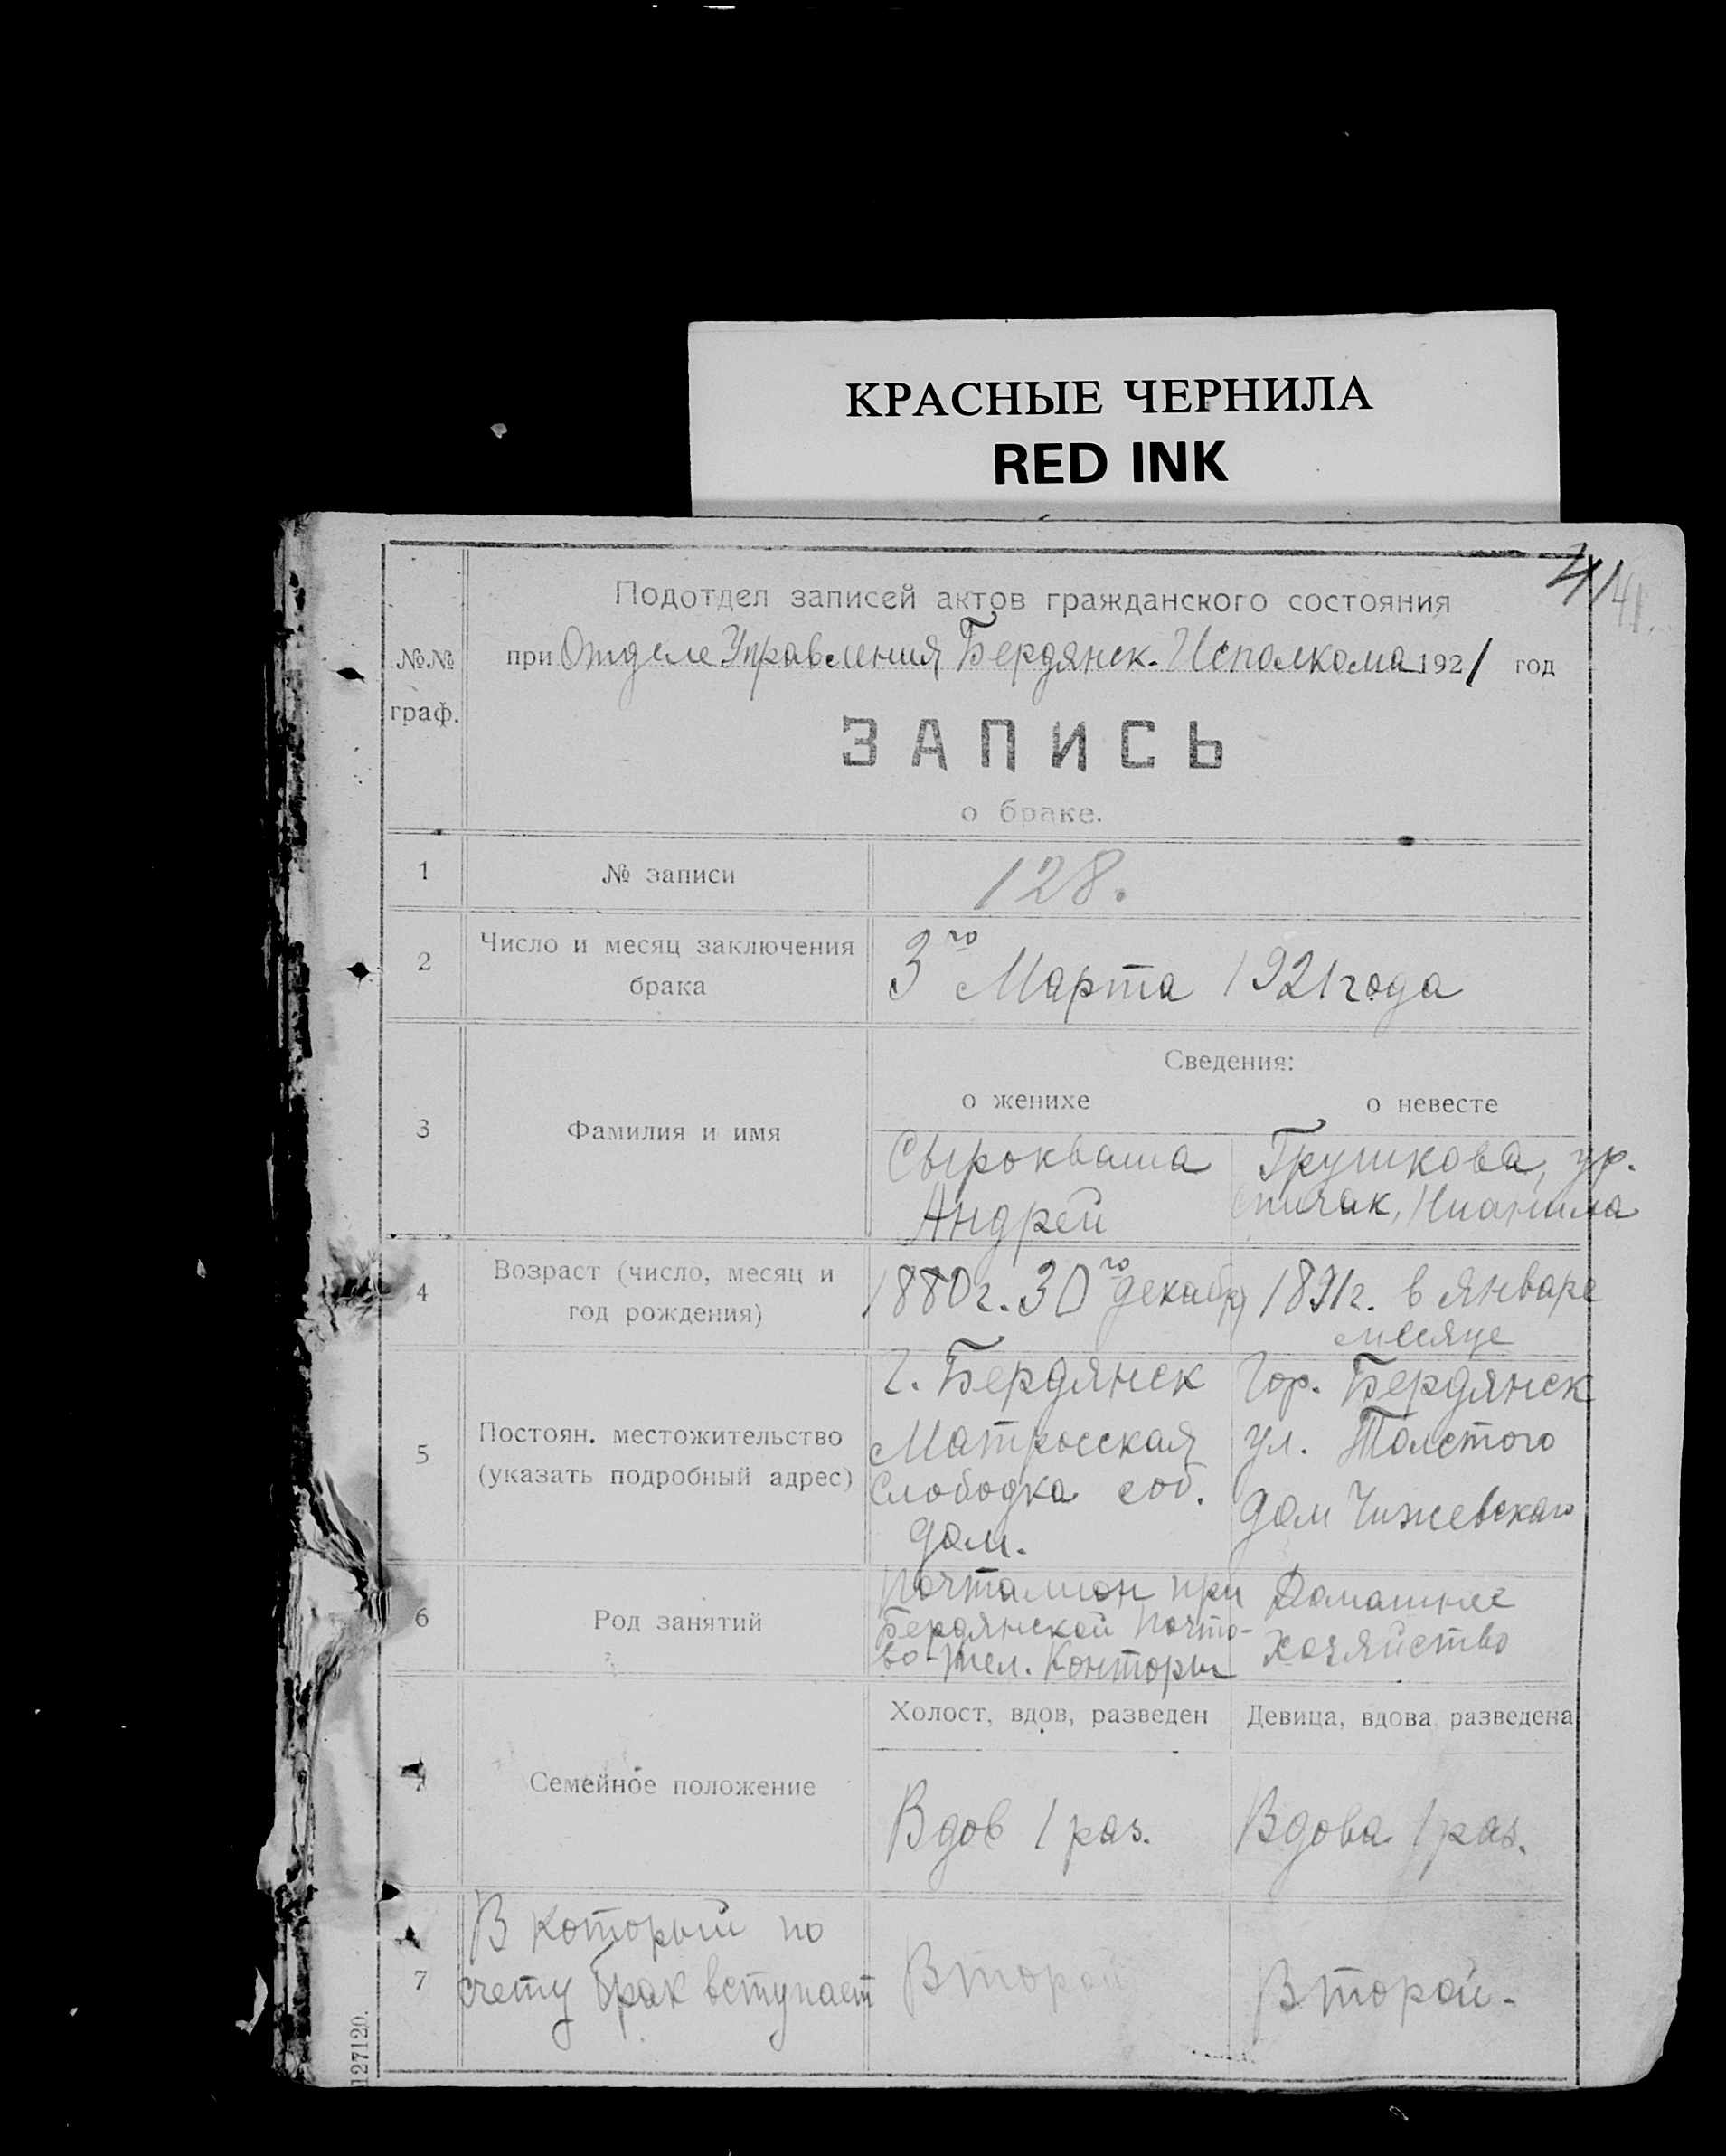 КРАСНЫЕ ЧЕРНИЛА
RED INK
41 41.
Подотдел записей актов гражданского состояния
№№ граф.
при Отделе Управления Бердянск. Исполкома 1921 год
ЗАПИСЬ
о браке.
1 № записи 128.
2 Число и месяц заключения брака
3го Марта 1921 года
Сведения:
о женихе о невесте
3 Фамилия и имя
Сырокваша
Андрей
Грушкова, ур.
Спичак,
4 Возраст (число, месяц и
год рождения)
1880 г. 30го декабр
1891 г. в январе
месяце
5 Постоян. местожительство
(указать подробный адрес)
г. Бердянск
Матросская
Слободка соб.
дом.
Гор. Бердянск
ул. Толстого
дом Чижевскаго
6 Род занятий
Почталион при
Бердянской Почто-
во-Тел. Конторы
Домашнее
хозяйство
Холост, вдов, разведен
Девица, вдова, разведена
7 Семейное положение
Вдов 1 раз.
Вдова 1 раз.
7 В который по
счету брак вступает
Второй
Второй.
127120.